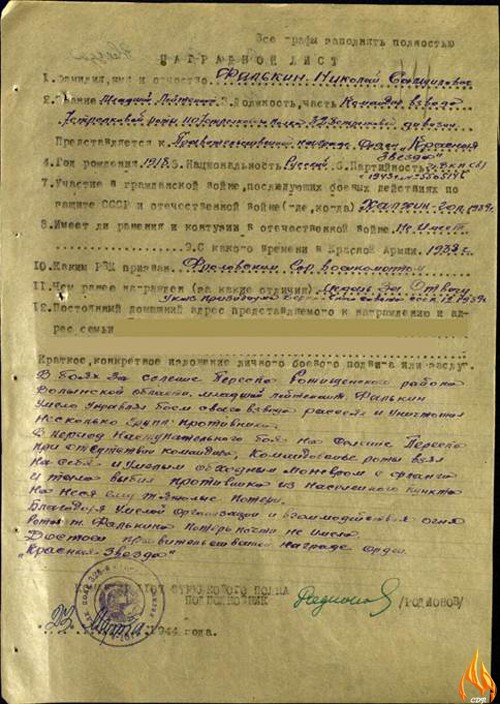 Все графы заполнять полностью
НАГРАДНОЙ ЛИСТ
1. Фамилия, имя и отчество Фалькин Николай
2. Звание Младший Лейтенант 3. Должность, часть Командир взвода
Стрелковой роты Стрелкового полка Стрелковой дивизии
Представляется к Правительственной награде Орден "Красная
Звезда"
4. Год рождения 1918 5. Национальность Русский 6. Партийность ВКП(б)
7. Участие в гражданской войне, последующих боевых действиях по
защите СССР и отечественной войне (где, когда) Халхин-гол 1939г.
8. Имеет ли ранения и контузии в отечественной войне Не имеет
9. С какого времени в Красной Армии 1938г.
10. Каким РВК призван Фроловским Гор военкоматом
11. Чем ранее награжден (за какие отличия) медаль "За Отвагу"
Указ 1939г.
12. Постоянный домашний адрес представляемого к награждению и ад-
рес семьи
Краткое, конкретное изложение личного боевого подвига или заслуг.
В боях за селение Переспа Рожищенского района
Волынской области, младший лейтенант Фалькин
Умело Управляя боем своего взвода рассеял и Уничтожил
Несколько групп противника.
В период Наступательного боя На Переспа
при отсутствии командира, Командование роты взял
На Себя и Умелым обходным Маневром с фланга
и тыла выбил противника из Населенного пункта
На Неся ему тяжелые потери.
Благодаря Умелой Организации и взаимодействия огня
Рота т. Фалькина потерь почти не имела.
Достоин правительственной награде Орден
"Красная Звезда"
СТРЕЛКОВОГО ПОЛКА
ПОДПОЛКОВНИК Родионов /РОДИОНОВ/
23 Марта 1944 года.